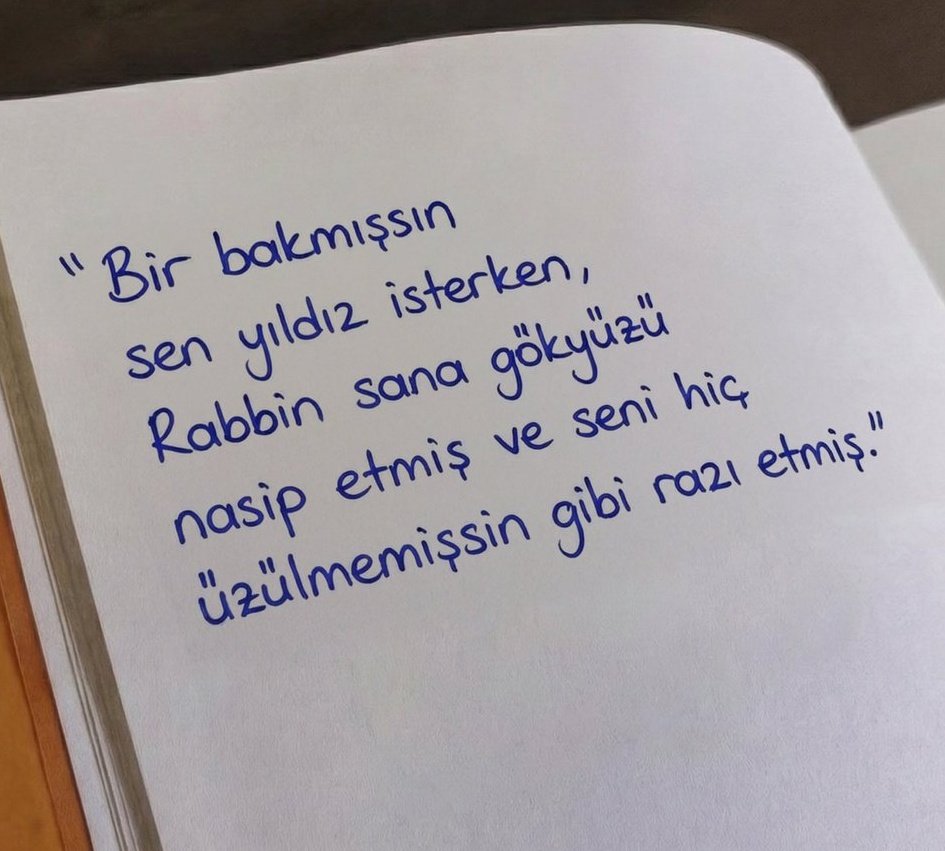 "Bir bakmışsın
sen yıldız isterken,
Rabbin sana gökyüzü
nasip etmiş ve seni hiç
üzülmemişsin gibi razı etmiş."